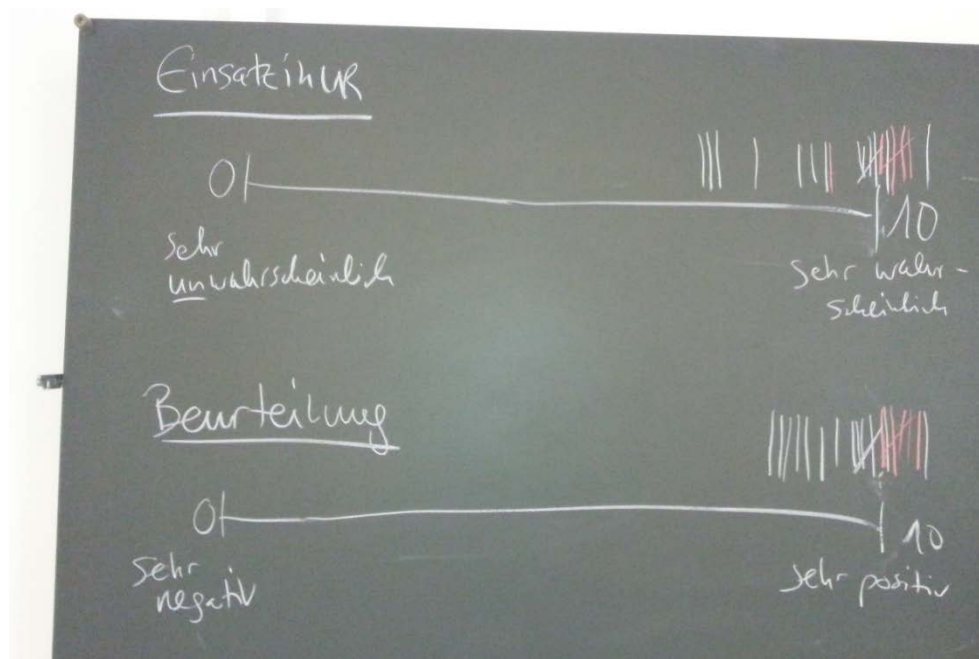 Einsatz in UR
0
10
sehr
unwahrscheinlich
sehr wahr-
scheinlich
Beurteilung
0
10
sehr
negativ
sehr positiv